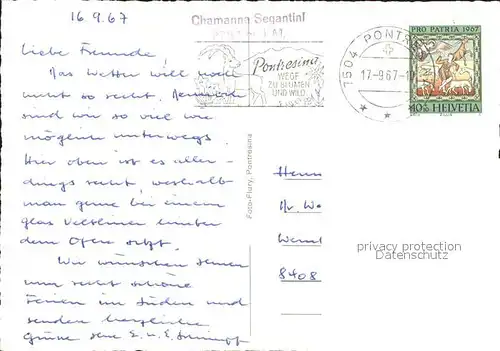 16.9.67
Chamanna Segantini
Liebe Freunde!
Das Wetter will noch
nicht so recht. Dennoch
sind wir so viel wie
möglich unterwegs.
Hier oben ist es aller-
dings recht, weshalb
man gerne bei einem
Glas Veltliner hinter
dem Ofen sitzt.
Wir wünschen Ihnen
nun recht schöne
Ferien im Süden und
senden herzliche
Grüsse Ihre E. u. E.
Pontresina
WEGE
ZU BLUMEN
UND WILD
7504 PONTRESINA
17-9.67-
PRO PATRIA 1967
40+20 HELVETIA
Foto-Flury, Pontresina
8408
privacy protection
Datenschutz